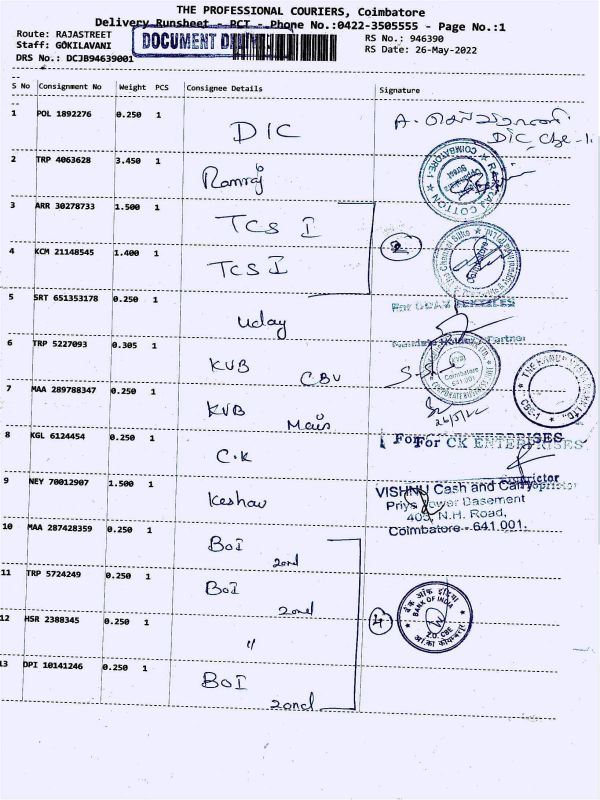 THE PROFESSIONAL COURIERS, Coimbatore
Delivery Runsheet - PCT - Phone No.:0422-3505555 - Page No.:1
Route: RAJASTREET
Staff: GOKILAVANI
DRS No.: DCJB94639001
DOCUMENT
RS No.: 946390
RS Date: 26-May-2022
S No Consignment No Weight PCS Consignee Details Signature
1 POL 1892276 0.250 1 DIC
DIC CBE-1.
2 TRP 4063628 3.450 1 Ramraj
COIMBATORE-1
COTTON
3 ARR 30278733 1.500 1 TCS I
2
4 KCM 21148545 1.400 1 TCS I
5 SRT 651353178 0.250 1 Uday
6 TRP 5227093 0.305 1 KVB CBU
Partner
KVB
Coimbatore
641 001
7 MAA 289788347 0.250 1 KVB Main
26/5/22
8 KGL 6124454 0.250 1 C.K
For For CK ENTERPRISES
9 NEY 70012907 1.500 1 Keshav
VISHNU Cash and Carry
Priya Tower Basement
405, N.H. Road,
Coimbatore - 641 001.
10 MAA 287428359 0.250 1 BOI zonel
11 TRP 5724249 0.250 1 BOI zonel
4
बैंक ऑफ इंडिया
BANK OF INDIA
Z.O. CBE
12 HSR 2388345 0.250 1 "
13 DPI 10141246 0.250 1 BOI zonel